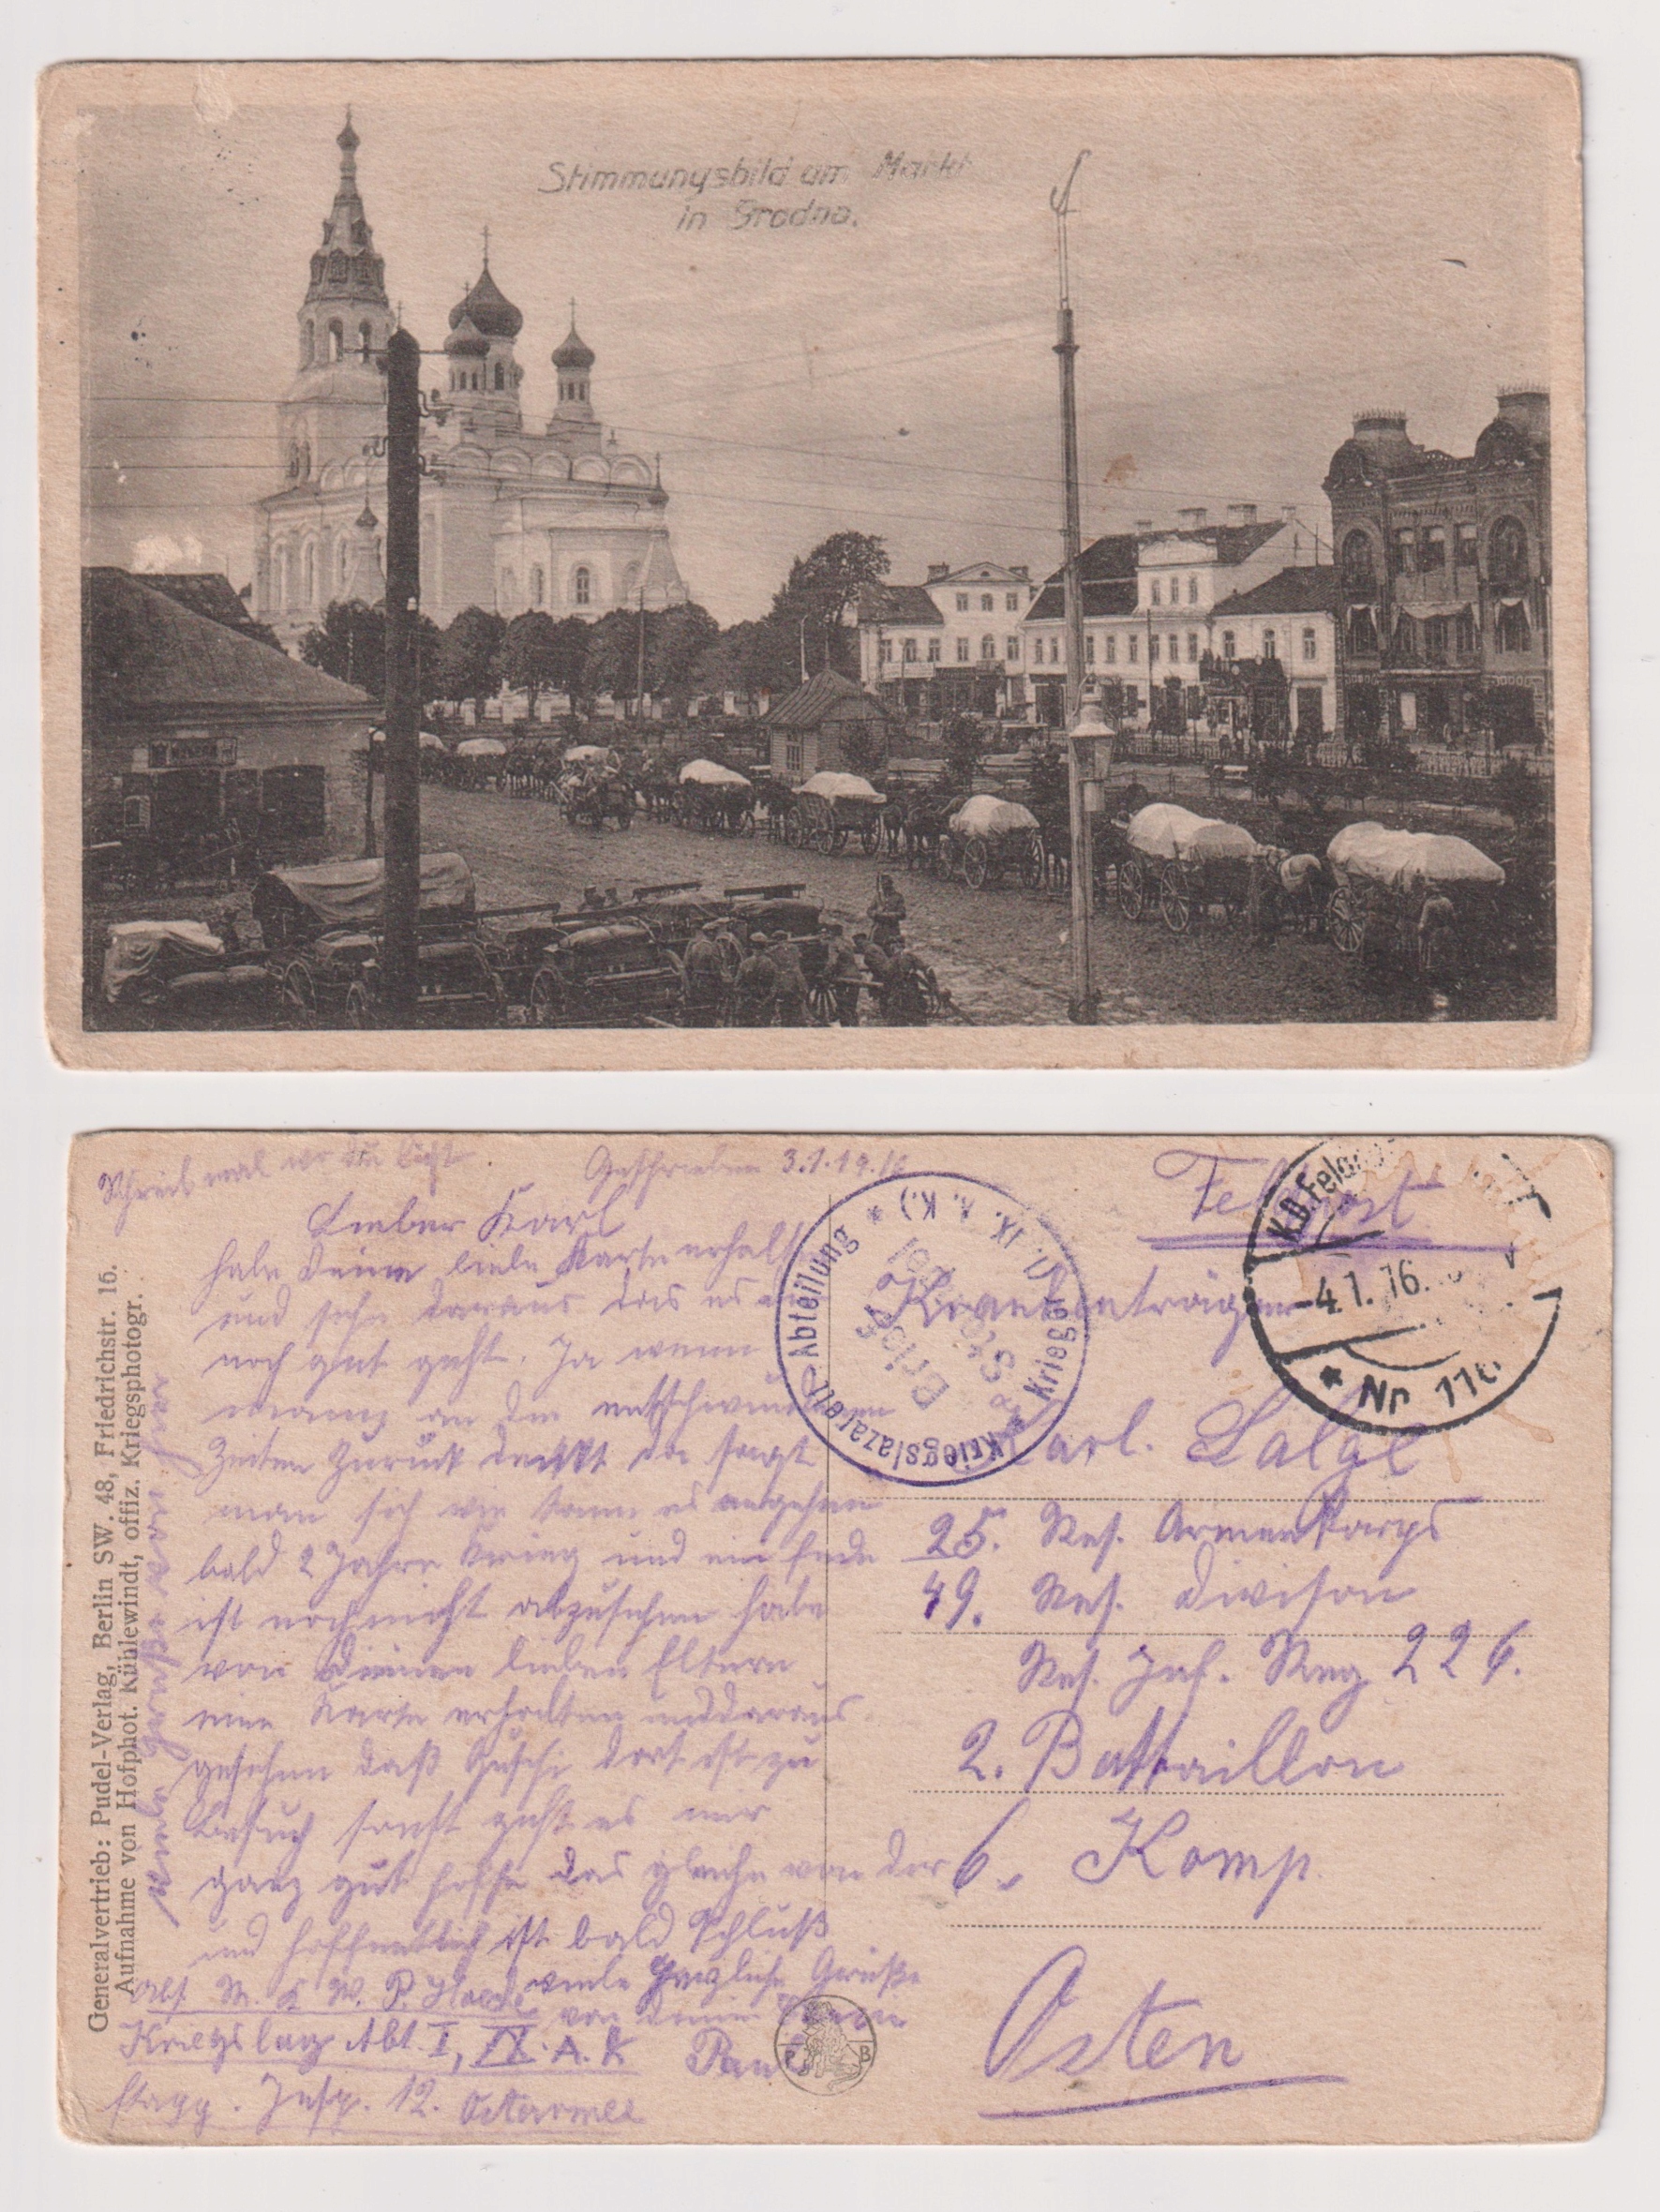 Stimmungsbild am Markt
in Grodno.
Schreib mal wo du liegst
Geschrieben 3.1.1916
Lieber Karl
habe Deine liebe Karte erhalten
und sehe daraus das es dir
noch gut geht. Ja wenn
man an die entschwundenen
Zeiten zurück denkt da sagt
man sich wie kann es angehen
bald 2 Jahre Krieg und ein Ende
ist noch nicht abzusehen habe
von Deinen lieben Eltern
eine Karte erhalten und daraus
gesehen daß dort ist zu
Besuch sonst geht es mir
ganz gut hoffe das gleiche von dir
und hoffentlich ist bald Schluß
viele herzliche Grüße
von Deinem
Paul
Abs. P.
Kriegslaz Abt. I, IX. A. K
Etapp. Insp. 12. Ostarmee
viele Grüße von
Generalvertrieb: Pudel-Verlag, Berlin SW. 48, Friedrichstr. 16.
Aufnahme von Hofphot. Kühlewindt, offiz. Kriegsphotogr.
Kriegslazarett-Abteilung * IX. A. K.)
Briefstempel
Feldpost
K.D.Feldpost
-4.1.16.
* Nr 116
Krankenträger
Karl. Salge
25. Res. Armeekorps
49. Res. Divison
Res. Inf. Reg 226.
2. Battaillon
6. Komp.
Osten
P B